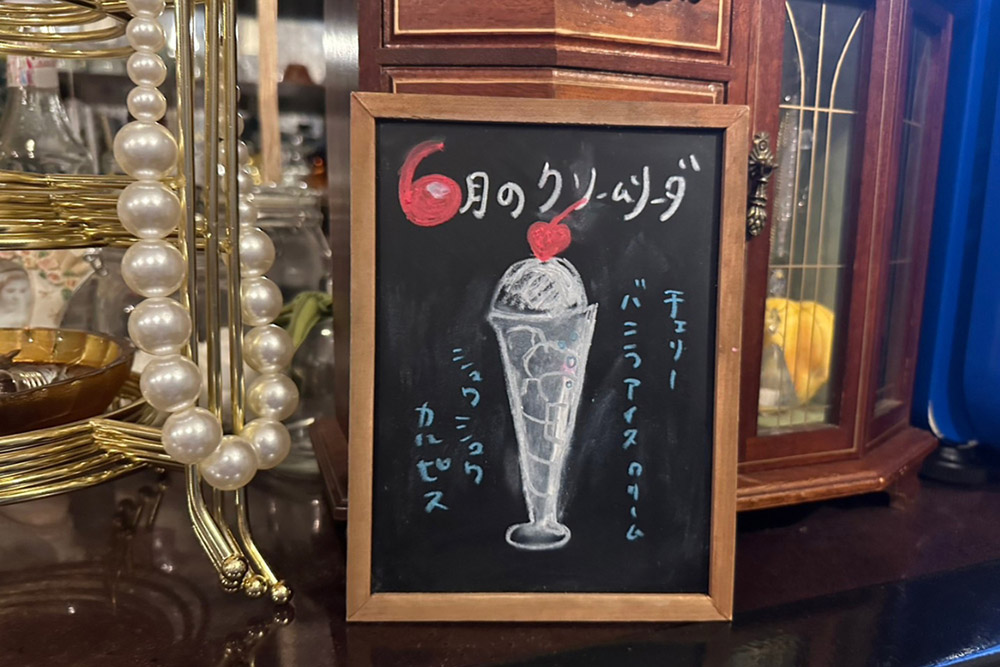 6月のクリームソーダ
チェリー
バニラアイスクリーム
シュワシュワ
カルピス